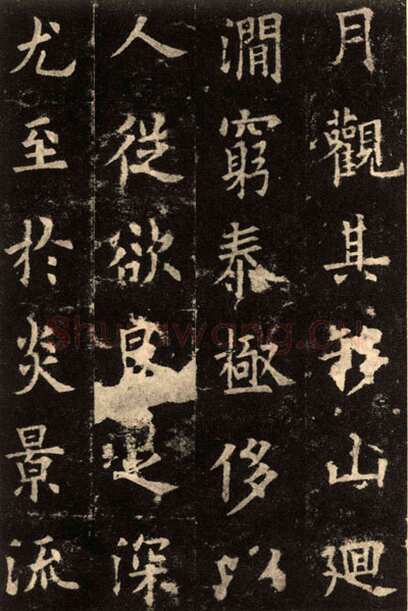 月觀其移山迴
澗窮泰極侈以
人從欲良足深
尤至於炎景流